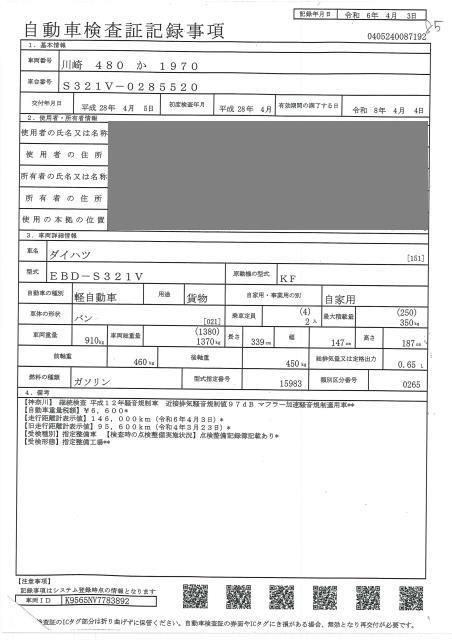 記録年月日 令和 6年 4月 3日
5
自動車検査証記録事項
0405240087192
1. 基本情報
車両番号 川崎 480 か 1970
車台番号 S321V-0285520
交付年月日 平成 28年 4月 5日 初度検査年月 平成 28年 4月 有効期間の満了する日 令和 8年 4月 4日
2. 使用者・所有者情報
使用者の氏名又は名称
使用者の住所
所有者の氏名又は名称
所有者の住所
使用の本拠の位置
3. 車両詳細情報
車名 ダイハツ [151]
型式 EBD-S321V 原動機の型式 KF
自動車の種別 軽自動車 用途 貨物 自家用・事業用の別 自家用
車体の形状 バン [021] 乗車定員 (4) 2人 最大積載量 (250) 350kg
車両重量 910kg 車両総重量 (1380) 1370kg 長さ 339cm 幅 147cm 高さ 187cm
前軸重 460kg 後軸重 450kg 総排気量又は定格出力 0.65L
燃料の種類 ガソリン 型式指定番号 15983 類別区分番号 0265
4. 備考
【神奈川】 継続検査 平成12年騒音規制車 近接排気騒音規制値97dB マフラー加速騒音規制適用車**
【自動車重量税額】¥6,600*
【走行距離計表示値】146,000km(令和6年4月3日)*
【旧走行距離計表示値】95,600km(令和4年3月23日)*
【受検種別】指定整備車 【検査時の点検整備実施状況】点検整備記録簿記載あり*
【受検形態】指定整備工場**
【注意事項】
記録事項はシステム登録時点の情報となります
車両ID K9565NV7783892
検査証のICタグ部分は折り曲げずに保管ください。自動車検査証の券面やICタグにき損がある場合、無効となり再交付が必要です。